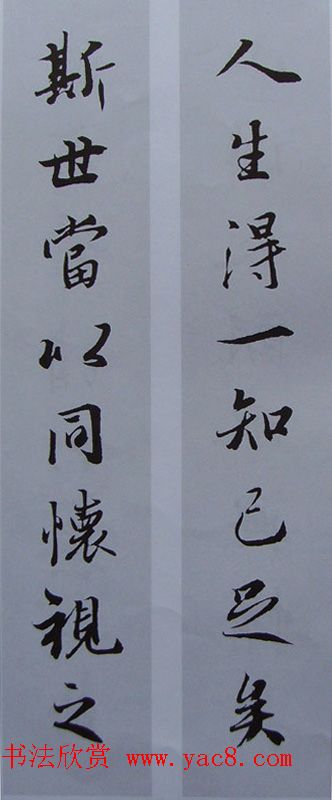 人生得一知己足矣
斯世當以同懷視之
书法欣赏 www.yac8.com